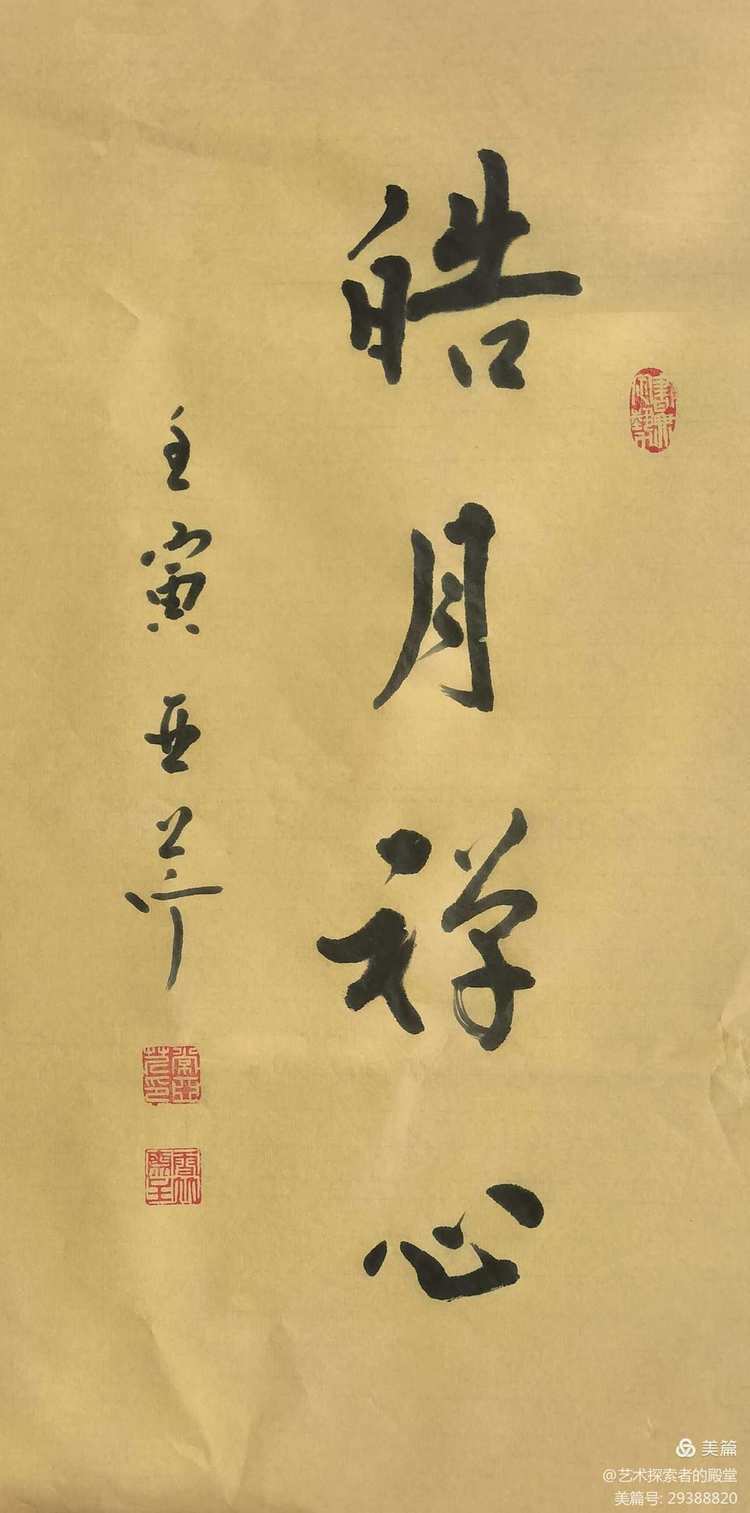 皓月禅心
壬寅亚芹
美篇
@艺术探索者的殿堂
美篇号: 29388820